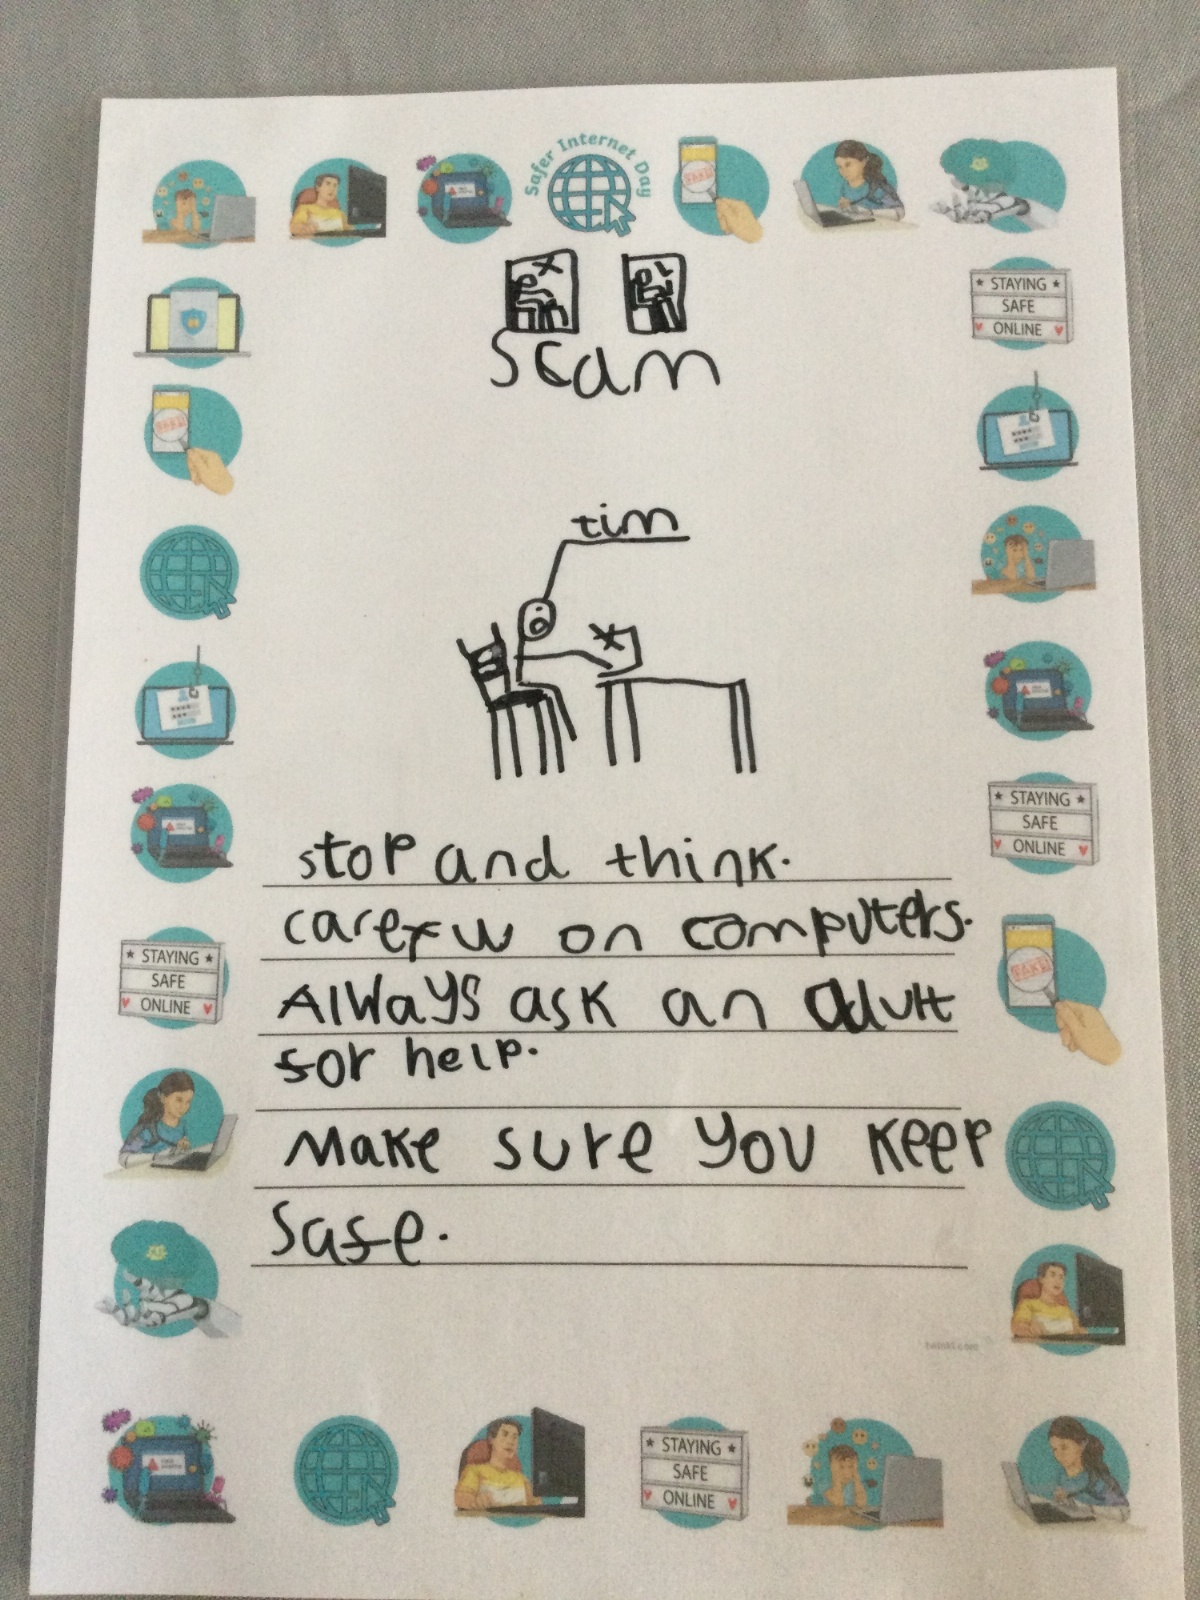 Safer Internet Day
STAYING
SAFE
ONLINE
scam
FAKE!
tim
STAYING
SAFE
ONLINE
stop and think.
carefull on computers.
STAYING
SAFE
ONLINE
Always ask an adult
for help.
Make sure you keep
safe.
STAYING
SAFE
ONLINE